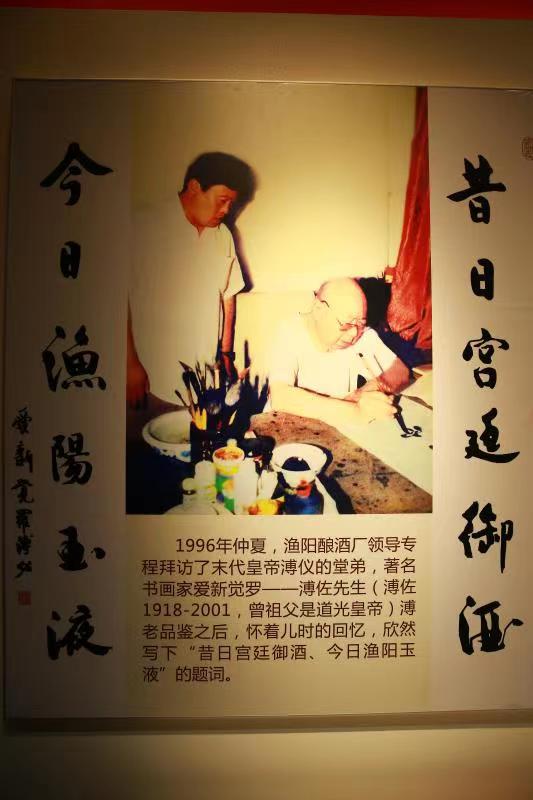 昔日宫廷御酒
今日渔陽玉液
爱新觉羅溥佐
1996年仲夏，渔阳酿酒厂领导专
程拜访了末代皇帝溥仪的堂弟，著名
书画家爱新觉罗——溥佐先生（溥佐
1918-2001，曾祖父是道光皇帝）溥
老品鉴之后，怀着儿时的回忆，欣然
写下“昔日宫廷御酒、今日渔阳玉
液”的题词。